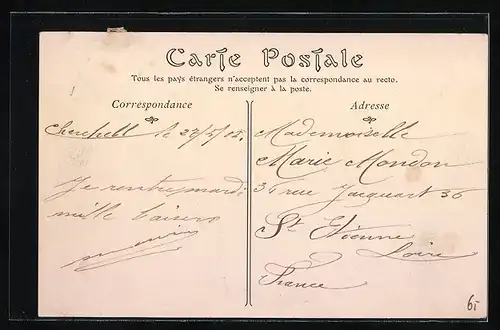 Carte Postale
Tous les pays étrangers n'acceptent pas la correspondance au recto.
Se renseigner à la poste.
Correspondance
Adresse
Cherchell le 27/5/05.
Je rentre mardi
mille baisers
Mademoiselle
Marie Mondon
36 rue Jacquart 36
St Etienne
Loire
France
65